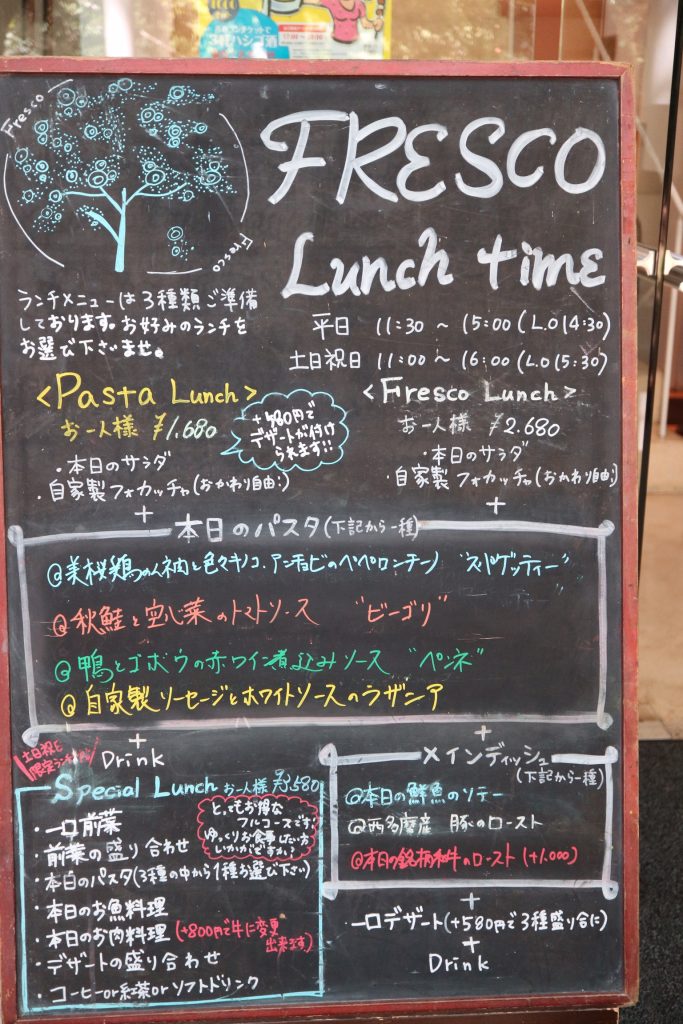 3軒ハシゴ酒
Fresco
Fresco
FRESCO
Lunch time
ランチメニューは3種類ご準備
しております。お好みのランチを
お選び下さいませ。
平日 11:30 ~ 15:00 (L.O 14:30)
土日祝日 11:00 ~ 16:00 (L.O 15:30)
<Pasta Lunch>
お一人様 ¥1.680
+580円で
デザートが付け
られます!!
・本日のサラダ
・自家製フォカッチャ(おかわり自由:)
+
<Fresco Lunch>
お一人様 ¥2.680
・本日のサラダ
・自家製フォカッチャ(おかわり自由:)
+
本日のパスタ(下記から一種)
@美桜鶏 と色々キノコ.アンチョビのペペロンチーノ "スパゲッティー"
@秋鮭と空心菜のトマトソース "ビーゴリ"
@鴨とゴボウの赤ワイン煮込みソース "ペンネ"
@自家製ソーセージとホワイトソースのラザニア
+
Drink
土日祝日
限定ランチ
Special Lunch お一人様 ¥3.580
とってもお得な
フルコースです!
ゆっくりお食事したい方
いかがですか?
・一口前菜
・前菜の盛り合わせ
・本日のパスタ(3種の中から1種お選び下さい)
・本日のお魚料理
・本日のお肉料理 (+800円で牛に変更
出来ます)
・デザートの盛り合わせ
・コーヒーor紅茶orソフトドリンク
+
メインディッシュ
(下記から一種)
@本日の鮮魚のソテー
@西多摩産 豚のロースト
@本日の銘柄和牛のロースト (+1.000)
+
一口デザート(+580円で3種盛り合に)
+
Drink